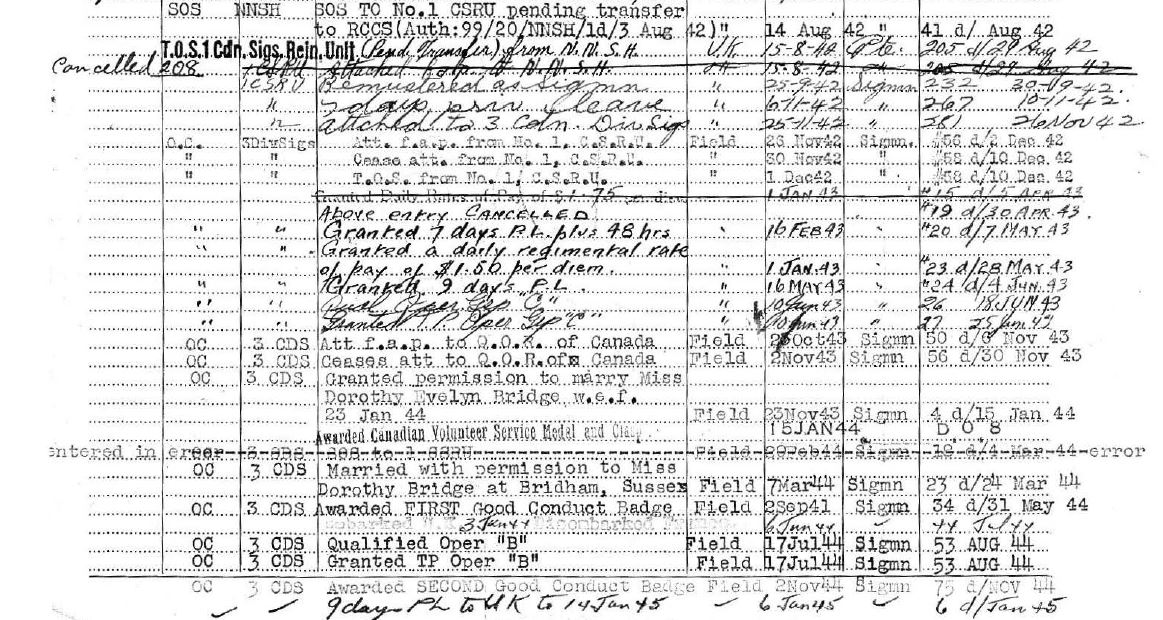 SOS NNSH SOS TO No.1 CSRU pending transfer
to RCCS(Auth:99/20/NNSH/1d/3 Aug 42)" 14 Aug 42 " 41 d/ Aug 42
T.O.S.1 Cdn. Sigs. Rein. Unit (Pend. Transfer) from N.N.S.H. UK 15-8-42 Pte. 205 d/29 Aug 42
Cancelled 208 1 CSRU Attached N.N.S.H. 15-8-42 205 d/29 Aug 42
1CSRU Remustered as Sigmn " 25-9-42 Sigmn 232 30-09-42.
" 7 days priv leave " 6-11-42 " 267 10-11-42.
" attched to 3 Cdn. Div Sigs " 25-11-42 " 281 26 NOV 42.
O.C. 3DivSigs Att. f.a.p. from No. 1, C.S.R.U. Field 26 Nov42 Sigmn. #56 d/2 Dec 42
" " Cease att. from No. 1, C.S.R.U. " 30 Nov42 " #58 d/10 Dec 42
" " T.O.S. from No. 1, C.S.R.U. " 1 Dec42 " #58 d/10 Dec 42
Granted Daily Rate of Pay of $1.75 per diem 1 JAN 43 " #15 d/5 APR 43
Above entry CANCELLED " #19 d/30 APR 43.
" " Granted 7 days P.L. plus 48 hrs " 16 FEB 43 " #20 d/7 MAY 43
" " Granted a daily regimental rate
of pay of $1.50 per diem. " 1 JAN. 43 " #23 d/28 MAY 43
" " Granted 9 days P.L. " 16 MAY 43 " #24 d/4 JUN. 43
" " Qual Oper Grp "C" " 10 Jun 43 " 26 18 JUN 43
" " Granted T.P. Oper Grp "C" " 10 Jun 43 " 27 25 Jun 43
OC 3 CDS Att f.a.p. to Q.O.R. of Canada Field Oct43 Sigmn 50 d/6 Nov 43
OC 3 CDS Ceases att to Q.O.R.of Canada Field 2Nov43 Sigmn 56 d/30 Nov 43
OC 3 CDS Granted permission to marry Miss
Dorothy Evelyn Bridge w.e.f.
23 Jan 44 Field 23Nov43 Sigmn 4 d/15 Jan 44
Awarded Canadian Volunteer Service Medal and Clasp 15JAN44 D O 8
entered in error 3 CDS SOS to 1 CSRU Field 29Feb44 Sigmn 18 d/4 Mar 44-error
OC 3 CDS Married with permission to Miss
Dorothy Bridge at Bridham, Sussex Field 7Mar44 Sigmn 23 d/24 Mar 44
OC 3 CDS Awarded FIRST Good Conduct Badge Field 2Sep41 Sigmn 34 d/31 May 44
Embarked U.K. 3 Jun 44 Disembarked 6 Jun 44 44 Jul 44
OC 3 CDS Qualified Oper "B" Field 17Jul44 Sigmn 53 AUG 44
OC 3 CDS Granted TP Oper "B" Field 17Jul44 Sigmn 53 AUG 44
OC 3 CDS Awarded SECOND Good Conduct Badge Field 2Nov44 Sigmn 75 d/NOV 44
✓ ✓ 9 days PL to UK to 14 Jan 45 ✓ 6 Jan 45 ✓ 6 d/Jan 45